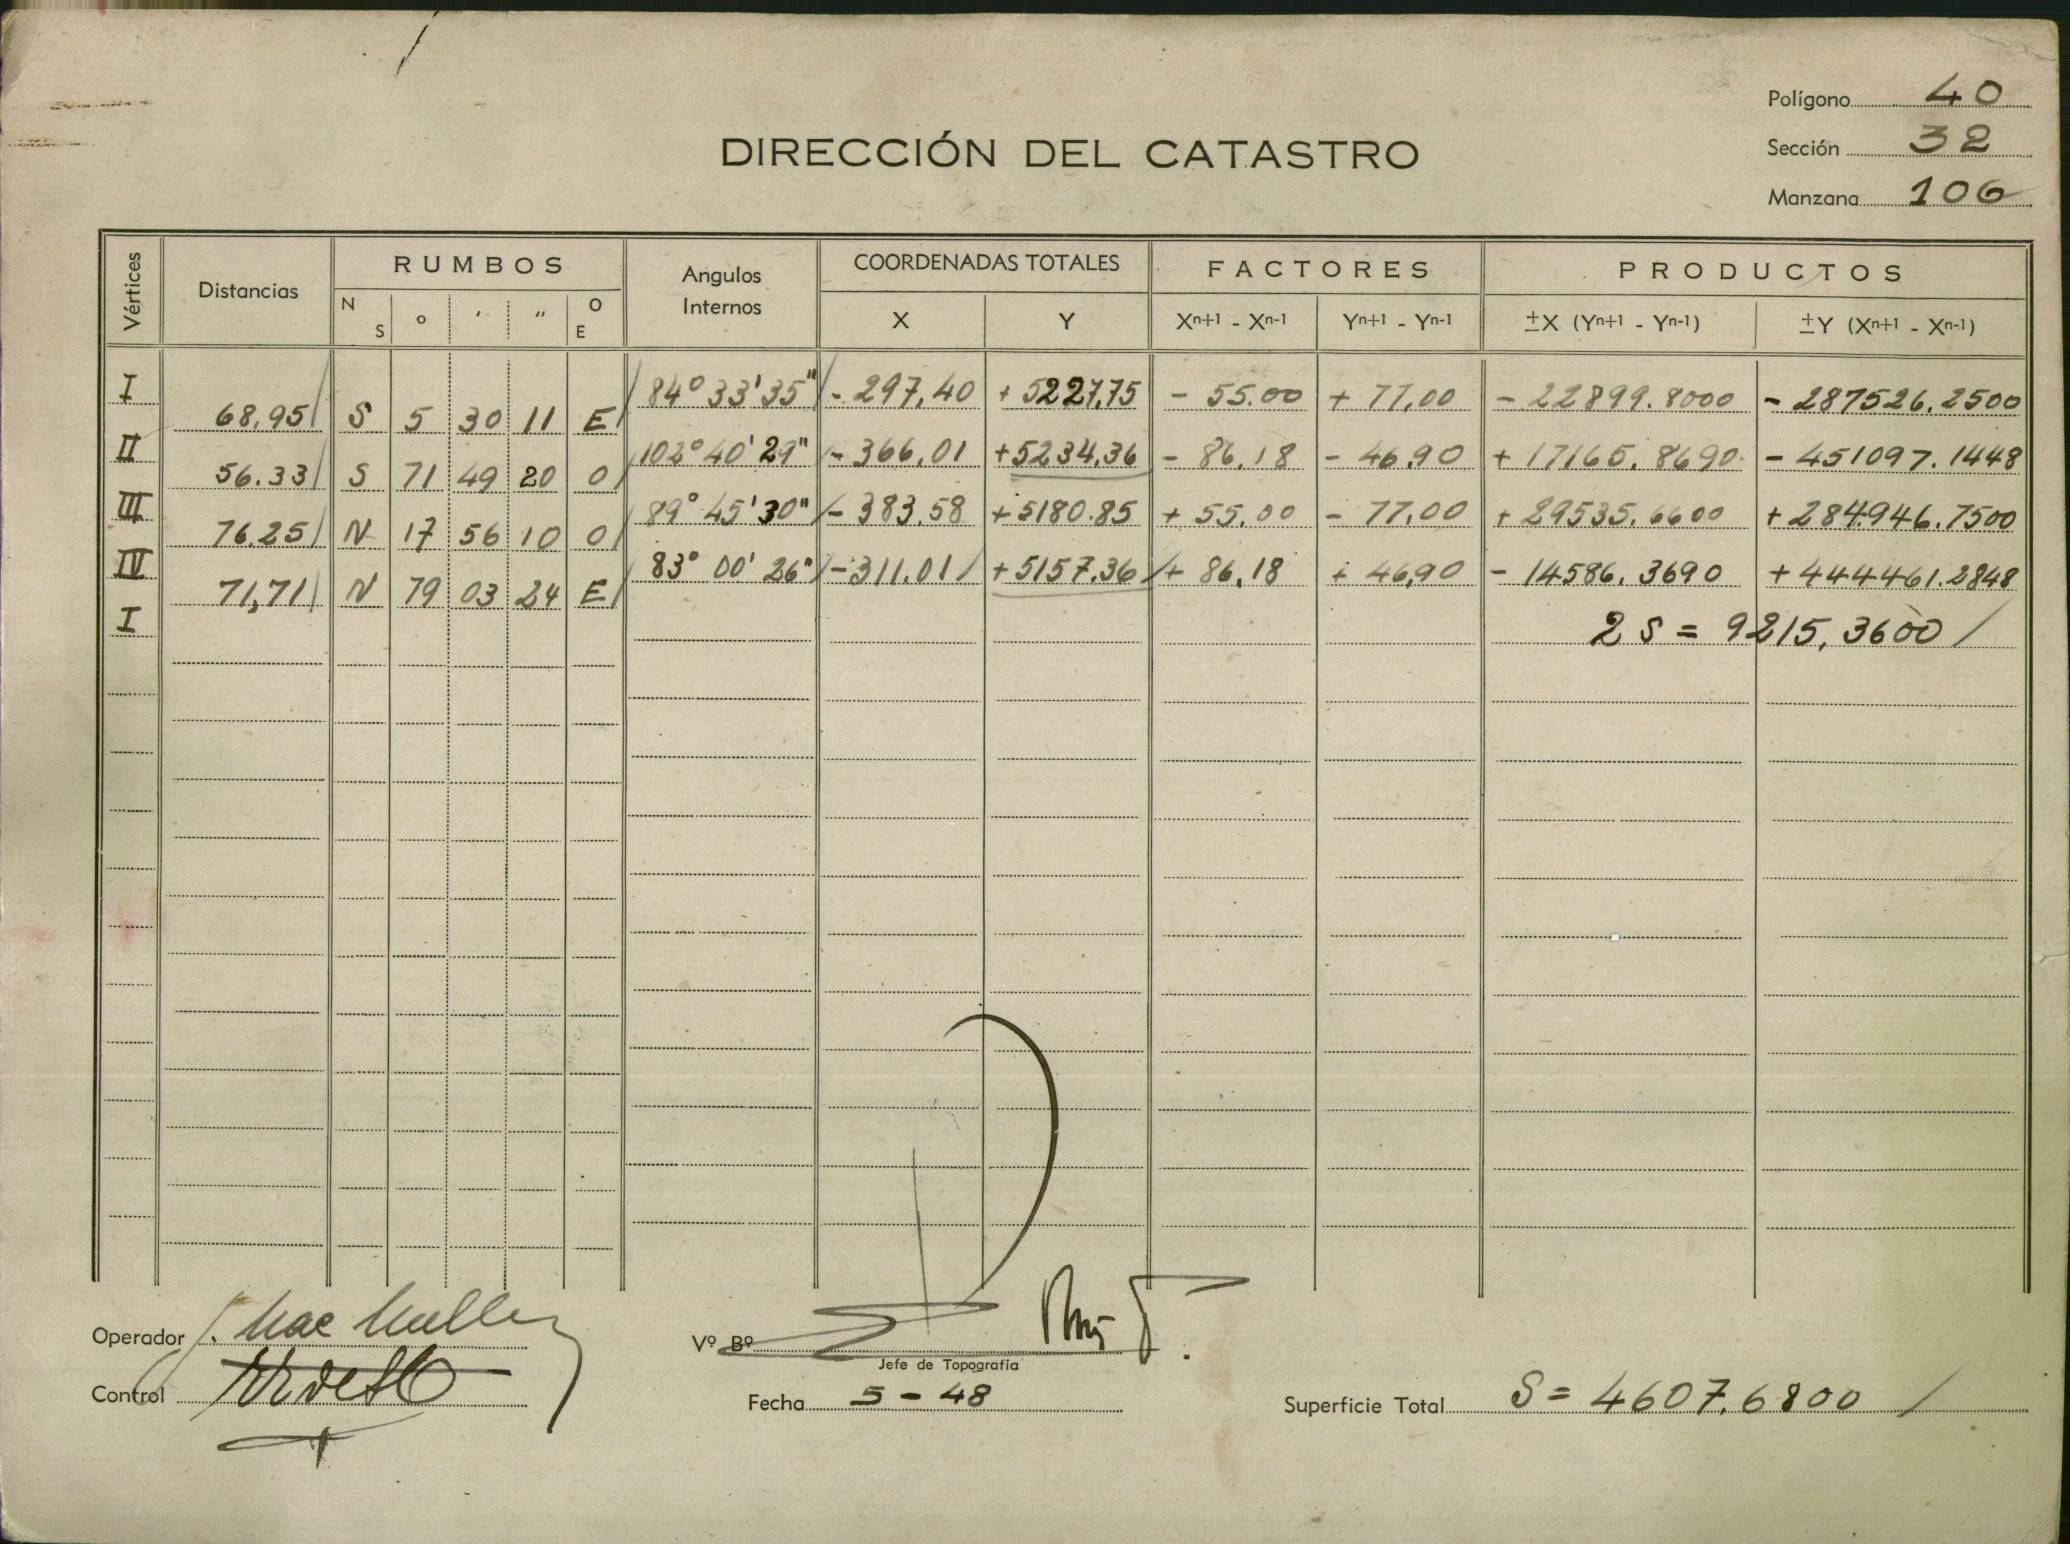 Polígono 40
Sección 32
Manzana 106
DIRECCIÓN DEL CATASTRO
Vértices Distancias RUMBOS Angulos Internos COORDENADAS TOTALES FACTORES PRODUCTOS
N S o ' " O E X Y Xn+1 - Xn-1 Yn+1 - Yn-1 ±X (Yn+1 - Yn-1) ±Y (Xn+1 - Xn-1)
I 84° 33' 35" - 297,40 + 5227,75 - 55.00 + 77,00 - 22899.8000 - 287526.2500
68,95 S 5 30 11 E
II 102° 40' 29" - 366,01 + 5234,36 - 86,18 - 46,90 + 17165.8690 - 451097.1448
56.33 S 71 49 20 O
III 89° 45' 30" - 383,58 + 5180.85 + 55,00 - 77,00 + 29535.6600 + 284946.7500
76.25 N 17 56 10 O
IV 83° 00' 26" - 311.01 + 5157.36 + 86,18 + 46,90 - 14586.3690 + 444461.2848
71,71 N 79 03 24 E
I 2 S = 9215,3600
Operador Mac Mullen
Vº Bº
Jefe de Topografía
Control
Fecha 5 - 48
Superficie Total S = 4607.6800